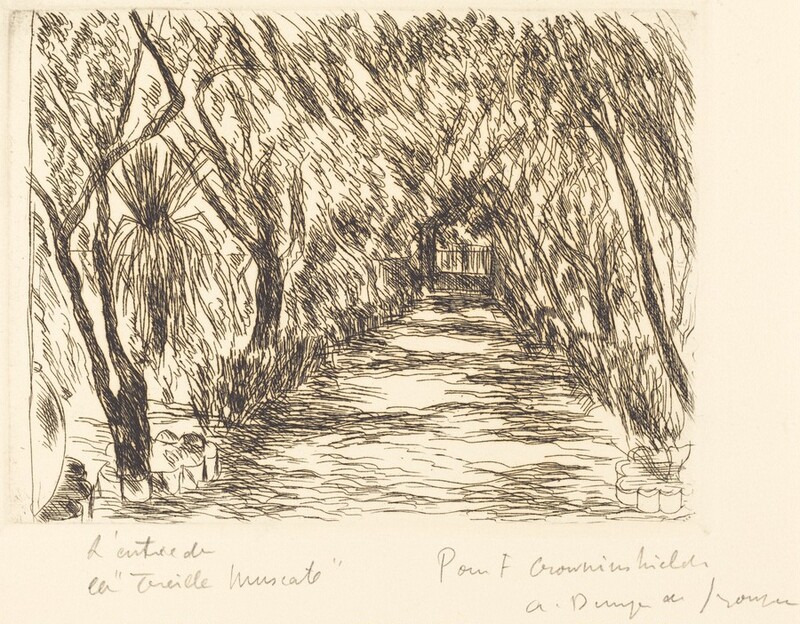 L'entrée de
la "Treille Muscate"
Pour F Crowninshield
a. Dunoyer de Segonzac